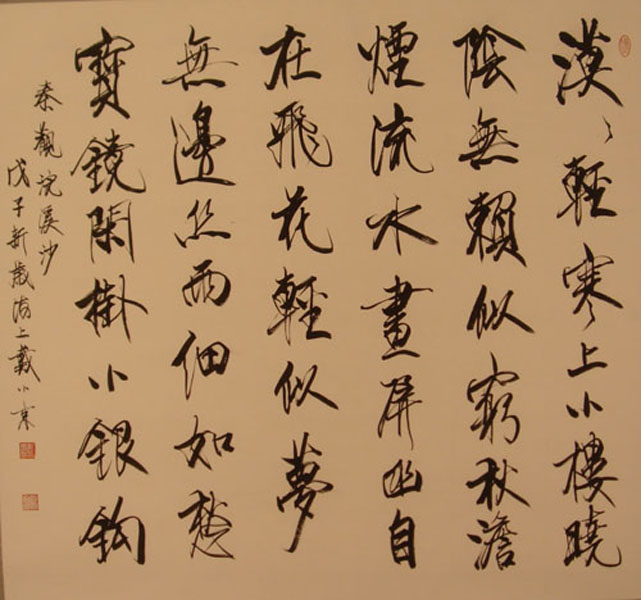 漠〻輕寒上小樓曉
陰無賴似窮秋澹
煙流水畫屏幽自
在飛花輕似夢
無邊丝雨细如愁
寶鏡閑掛小銀鈎
秦觀浣溪沙
戊子新歲海上戴小京